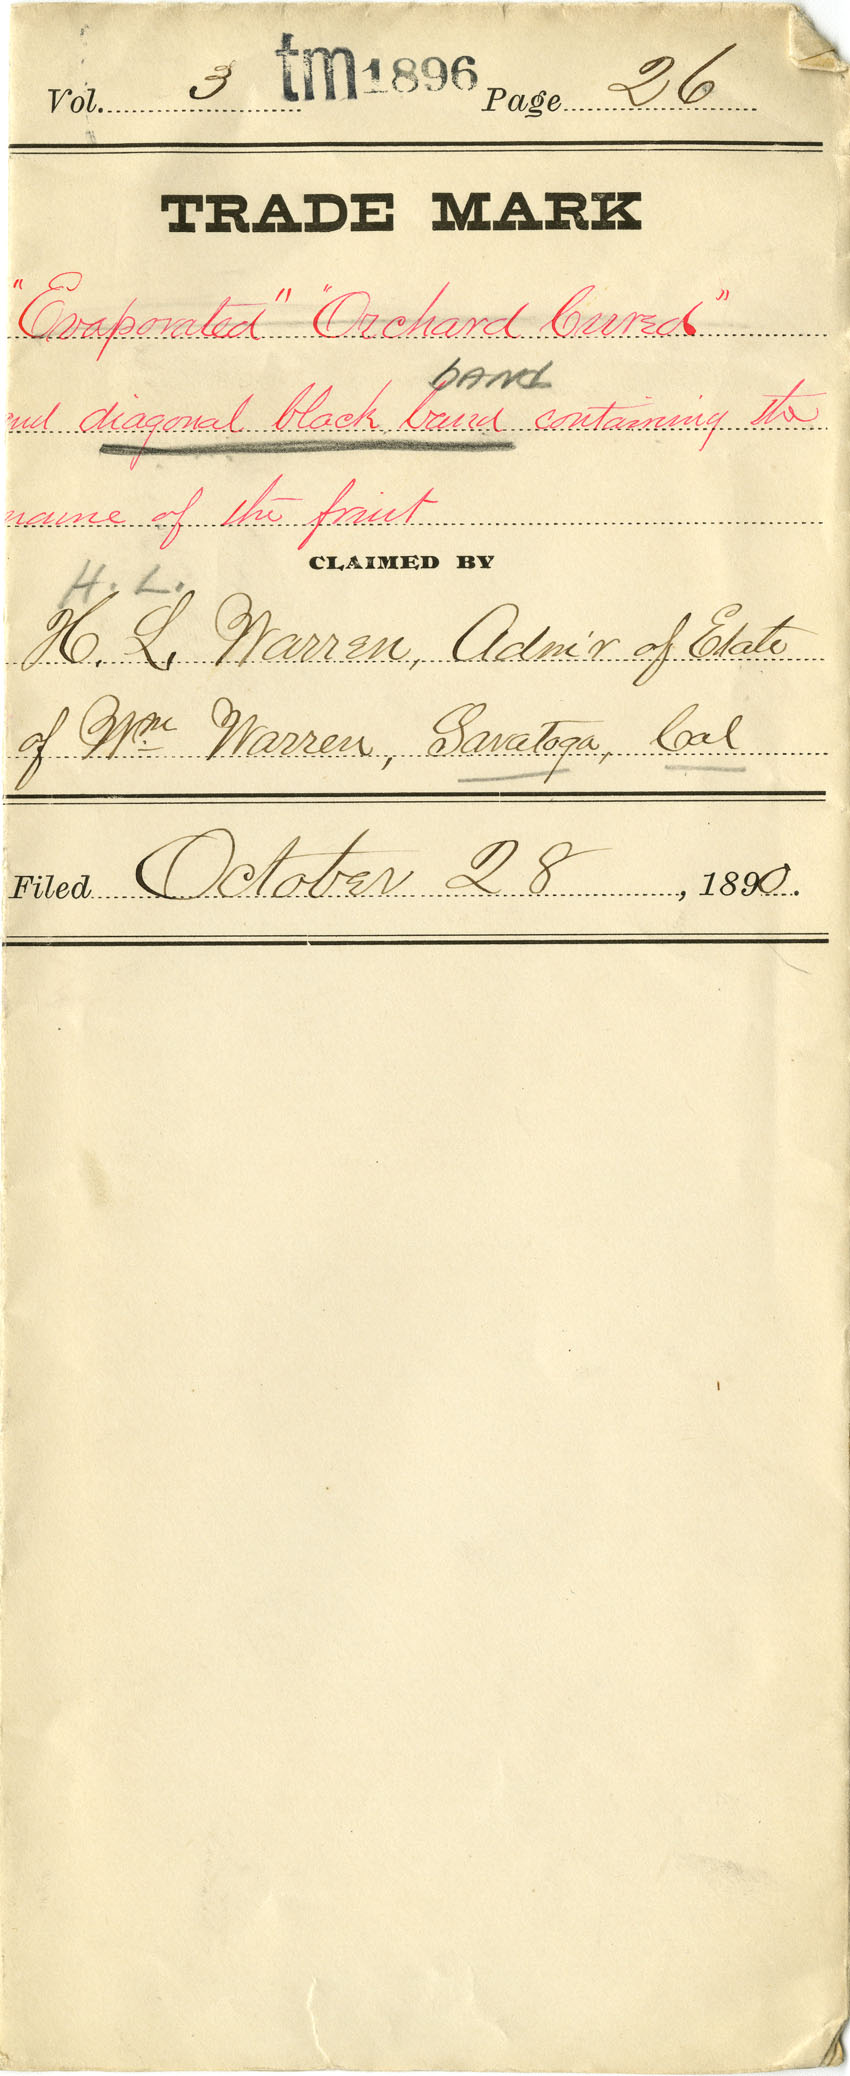 Vol. 3 tm1896 Page 26
TRADE MARK
"Evaporated" "Orchard Cured"
band
and diagonal black band containing the
name of the fruit
CLAIMED BY
H. L.
H. L. Warren, Adm'r of Estate
of Wm Warren, Saratoga, Cal
Filed October 28, 1890.